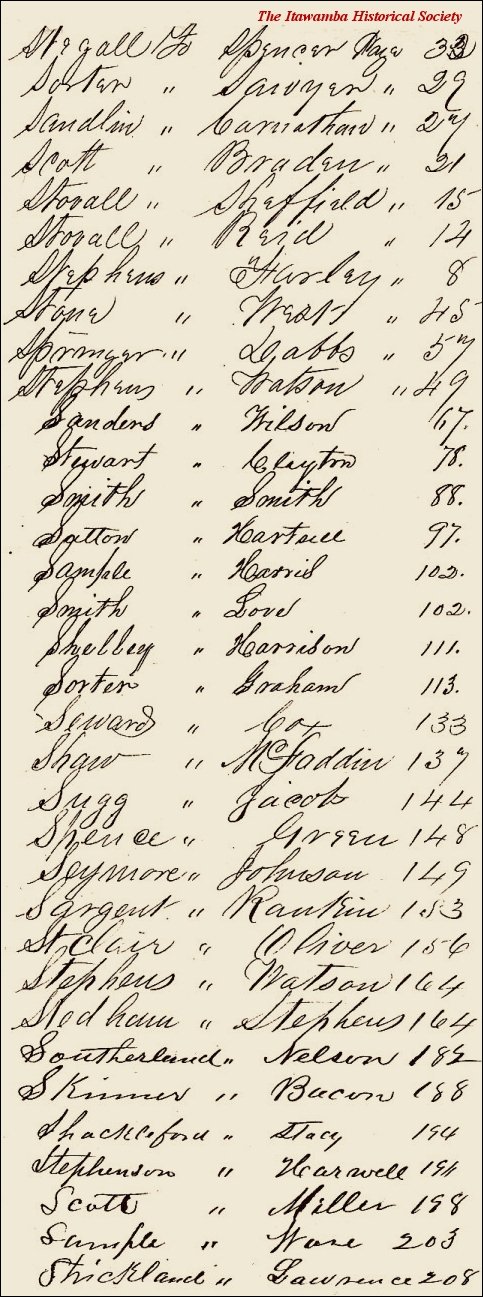 The Itawamba Historical Society
Stegall To Spencer Page 33
Sorter " Sawyer " 29
Sandlin " Carnathan " 27
Scott " Braden " 21
Stovall " Sheffield " 15
Stovall " Reid " 14
Stephens " Farley " 8
Stone " West " 45
Springer " Dabbs " 57
Stephens " Watson " 49
Sanders " Wilson 67.
Stewart " Clayton 78.
Smith " Smith 88.
Sutton " Hartsell 97.
Sample " Harris 102.
Smith " Love 102.
Shelley " Harrison 111.
Sorter " Graham 113.
Seward " Cox 133
Shaw " McFaddin 137
Sugg " Jacob 144
Spence " Green 148
Seymore " Johnson 149
Sargent " Rankin 153
St Clair " Oliver 156
Stephens " Watson 164
Stedham " Stephens 164
Southerland " Nelson 182
Skinner " Bacon 188
Shackleford " Stacy 194
Stephenson " Harwell
Scott " Miller 198
Sample " Ware 203
Strickland " Lawrence 208